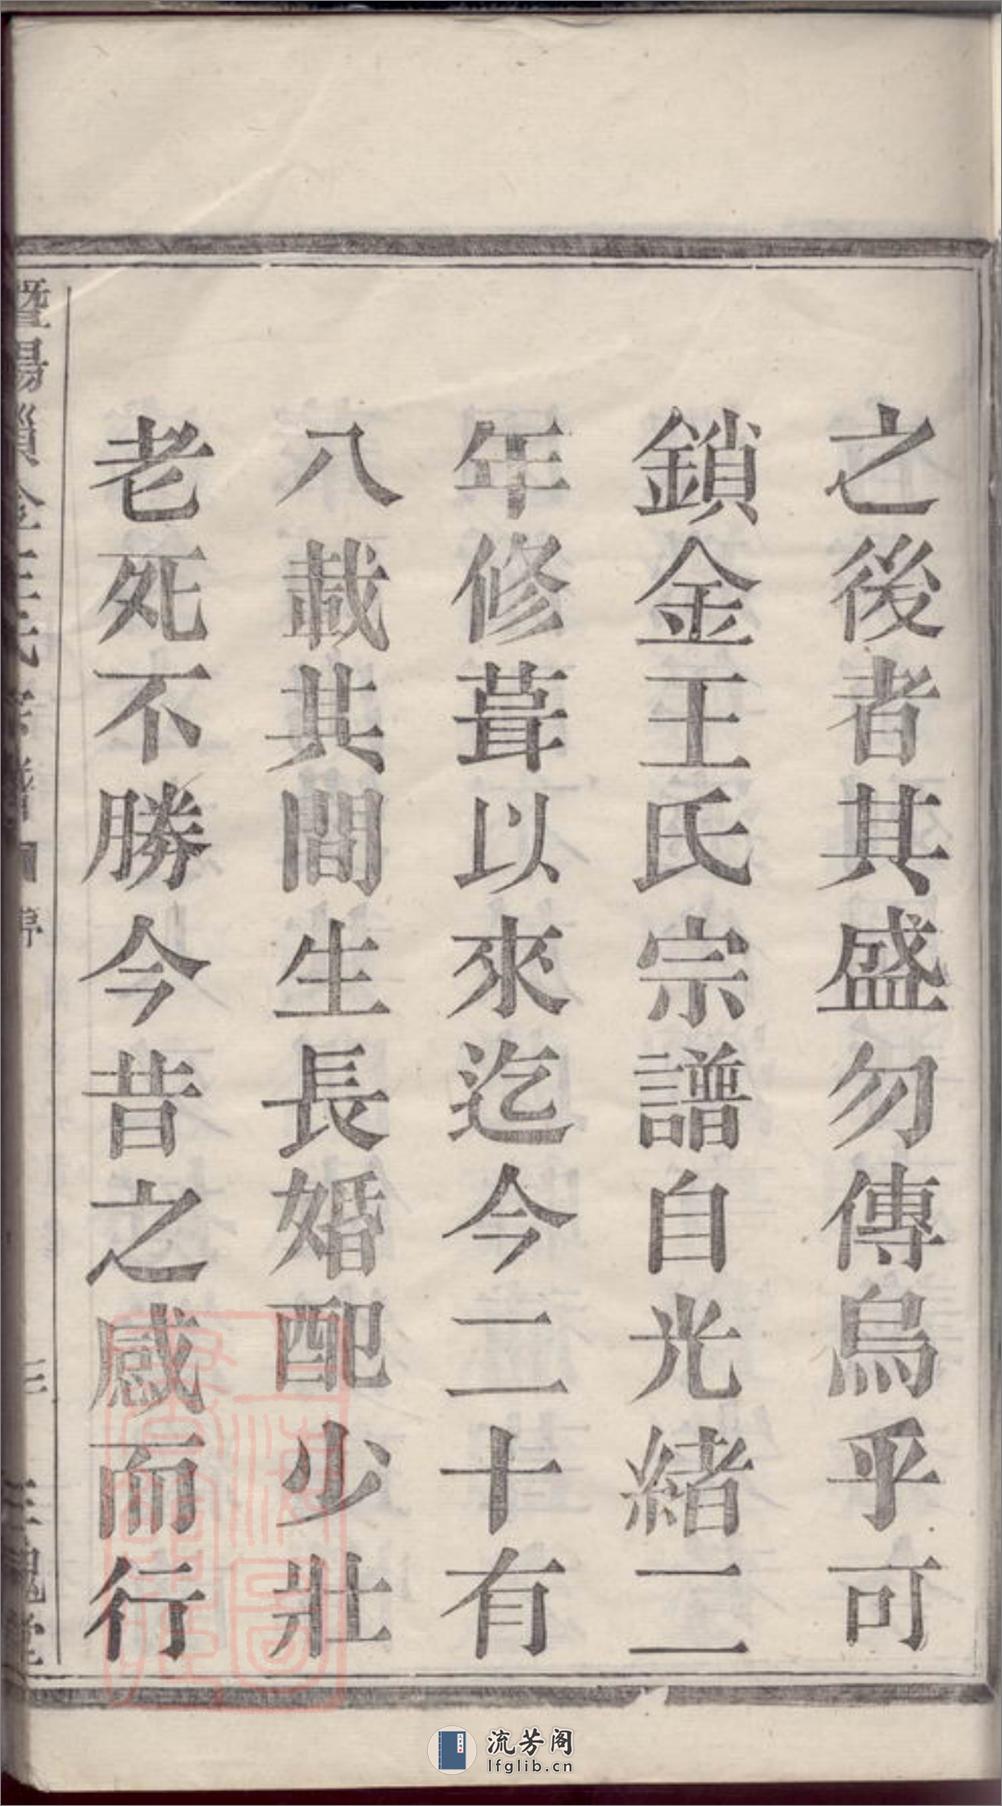 之後者其盛勿傳烏乎可
鎖金王氏宗譜自光緒二
年修葺以來迄今二十有
八載其間生長婚配少壯
老死不勝今昔之感而行
暨陽鎖金王氏宗譜
三
三槐堂
流芳阁
lfglib.cn